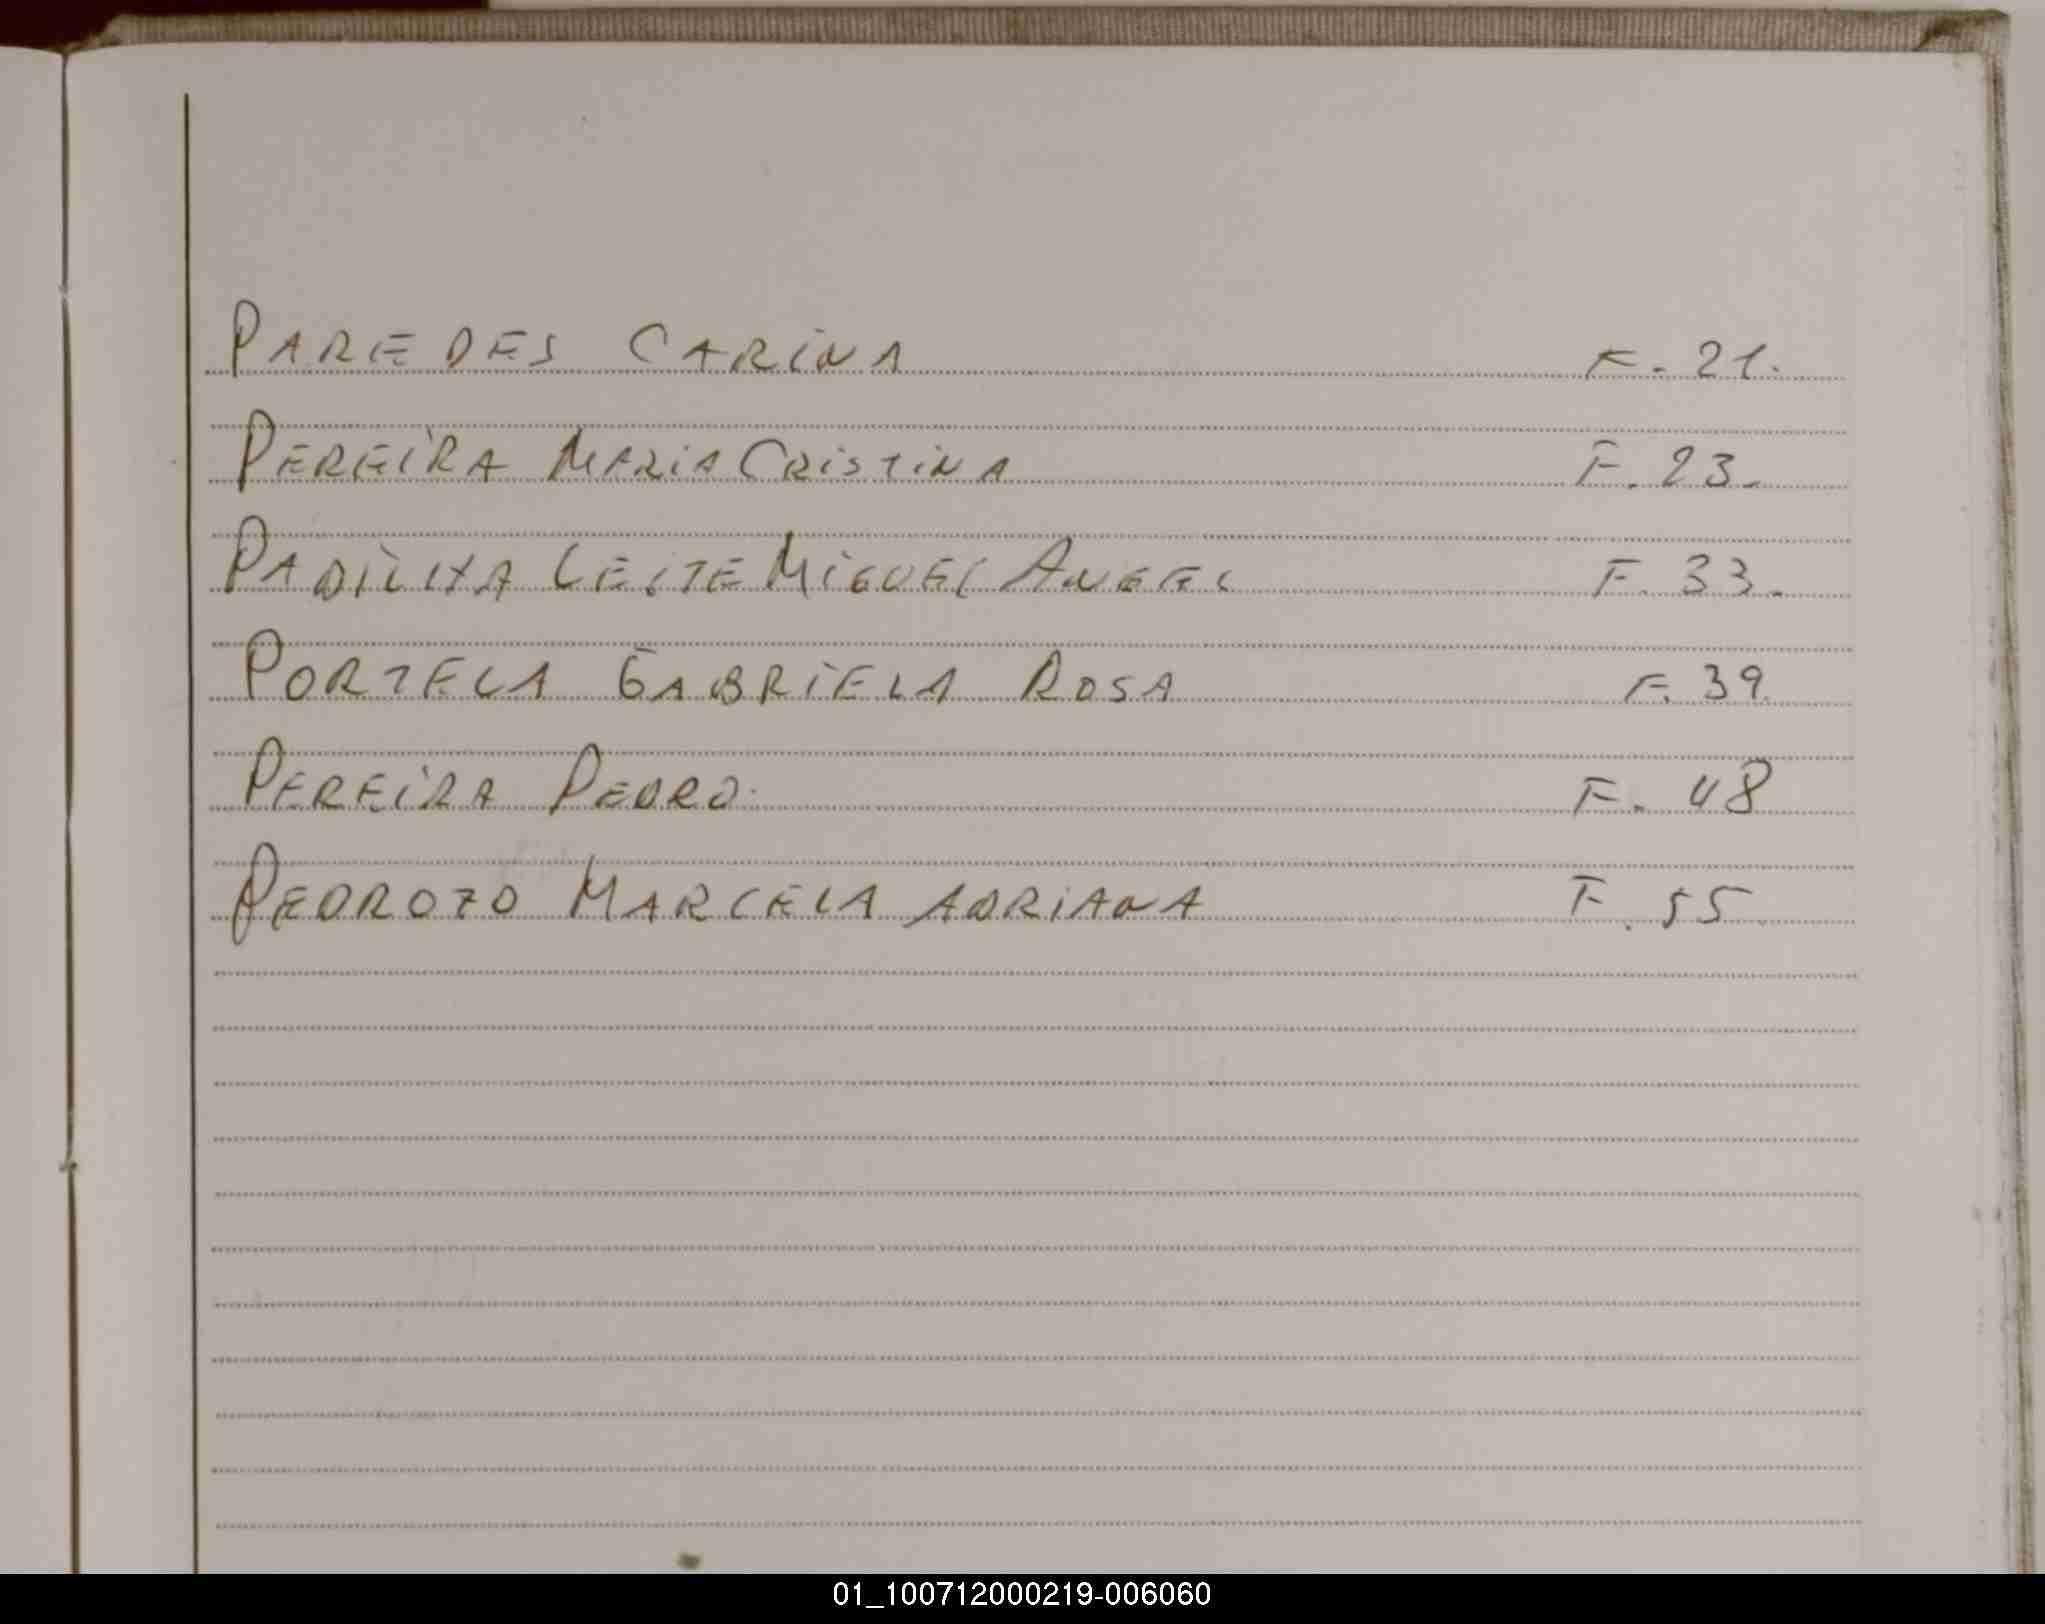 PAREDES CARINA F. 21.
PEREIRA MARIA CRISTINA F. 23.
PADILHA LEITE MIGUEL ANGEL F. 33.
PORTELA GABRIELA ROSA F. 39.
PEREIRA PEDRO. F. 48
PEDROZO MARCELA ADRIANA F. 55
01_100712000219-006060